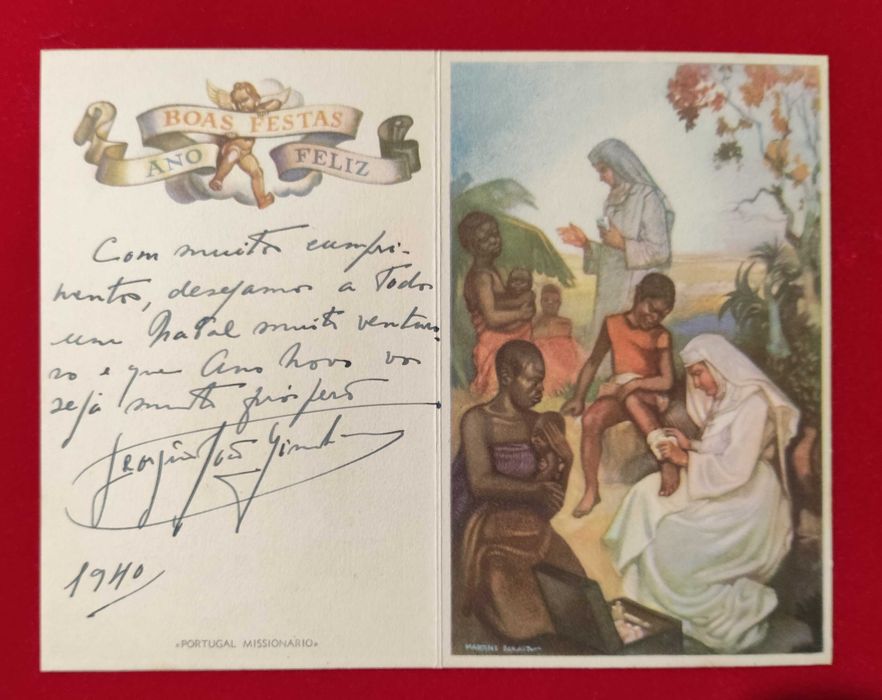 BOAS FESTAS
ANO FELIZ
Com muitos cumpri-
mentos, desejamos a todos
um Natal muito ventu-
ro e que Ano novo vos
seja muito próspero
João
1940
«PORTUGAL MISSIONÁRIO»
MARTINS BARATA